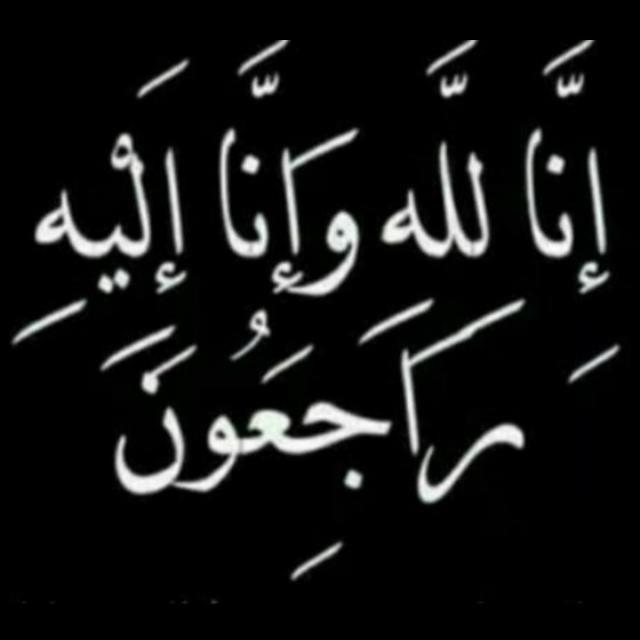 إِنَّا لِلَّهِ وَإِنَّا إِلَيْهِ
رَاجِعُونَ